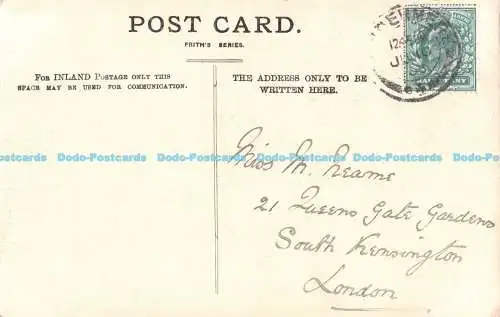 POST CARD.
FRITH'S SERIES.
FOR INLAND POSTAGE ONLY THIS
SPACE MAY BE USED FOR COMMUNICATION.
THE ADDRESS ONLY TO BE
WRITTEN HERE.
Dodo-Postcards Dodo-Postcards Dodo-Postcards Dodo-Postcards Dodo-Postcards
Miss M. Nearne
21 Queens Gate Gardens
South Kensington
London